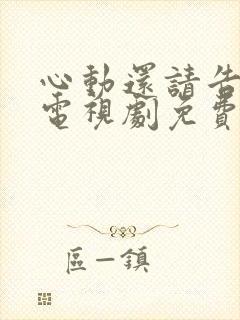 心動還請告
電視劇免費
區一鎮